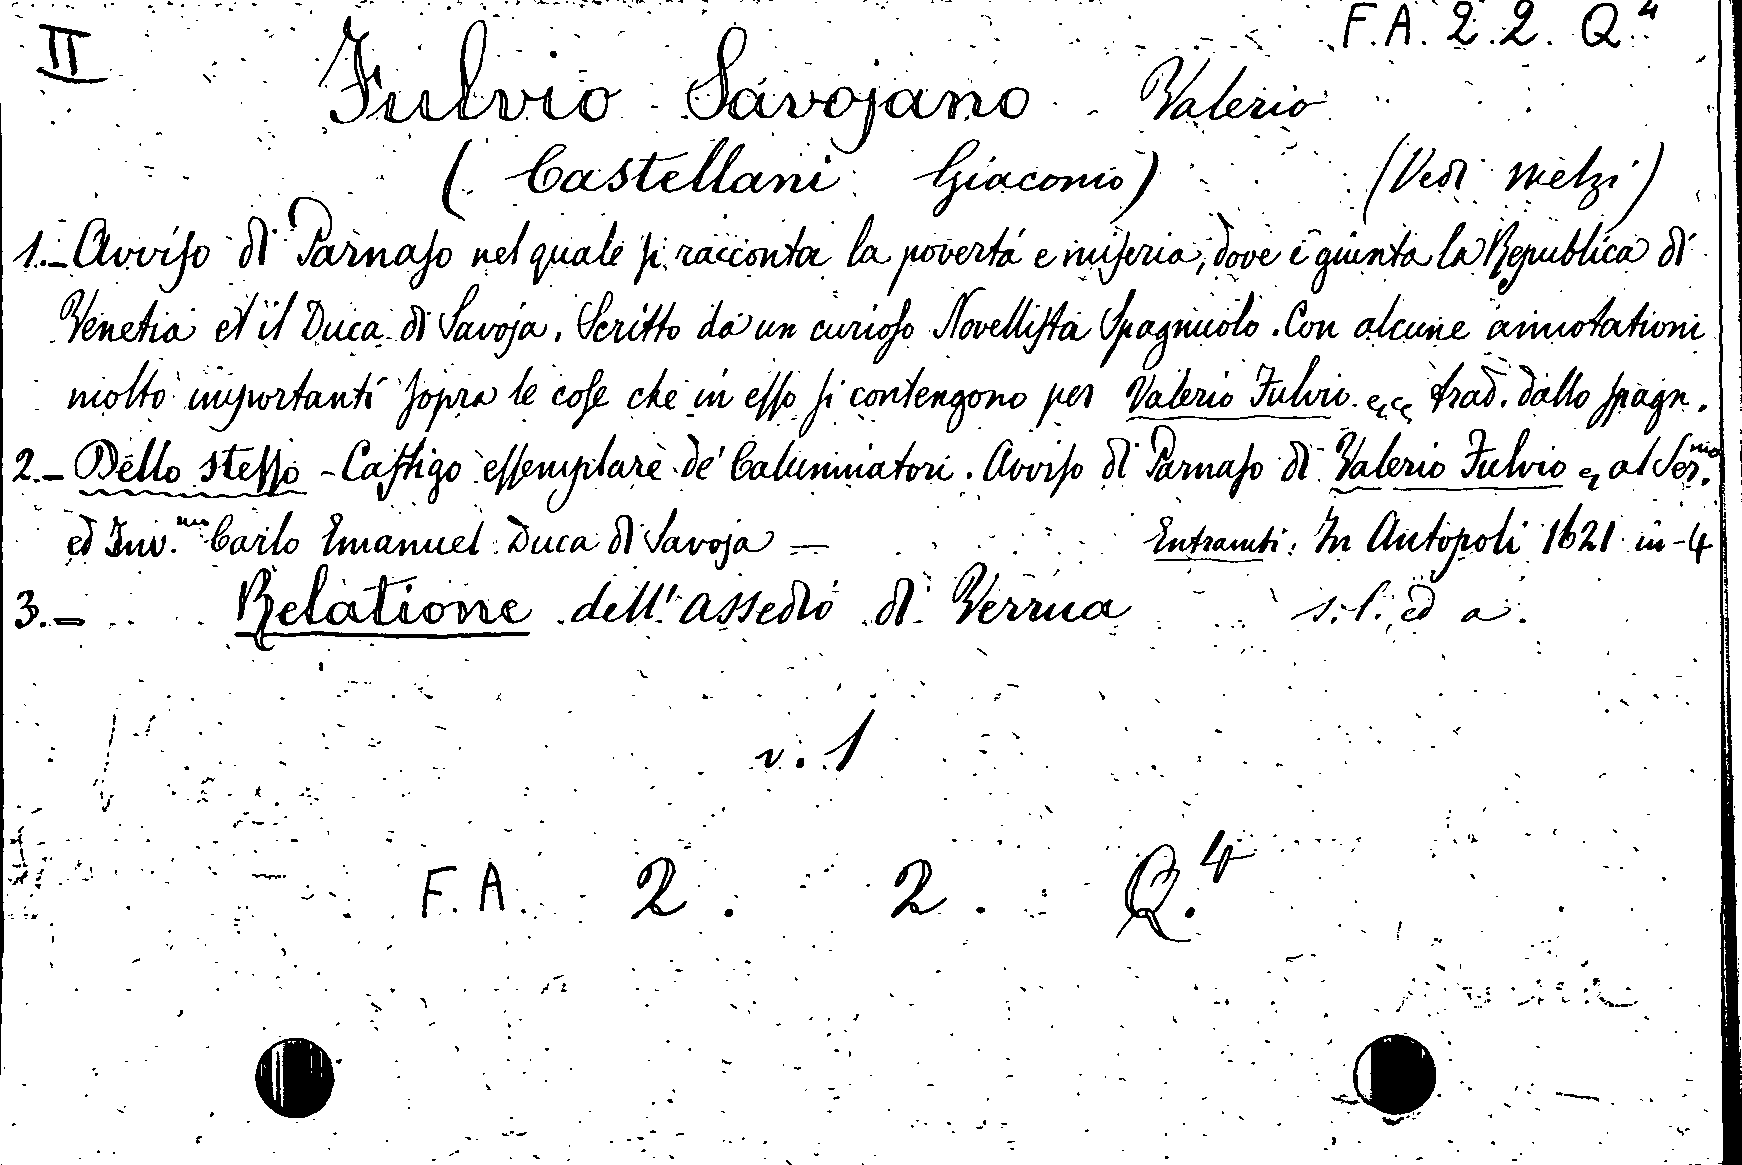 II
F.A. 2.2. Q.4
Fulvio Savojano Valerio
(Castellani Giacomo) (Vedi Melzi)
1.- Avviſo di Parnaſo nel quale ſi racconta la povertà e miſeria, dove è giunta la Republica di
Venetia et il Duca di Savoja. Scritto da un curioſo Novelliſta Spagnuolo. Con alcune annotationi
molto importanti ſopra le coſe che in eſſo ſi contengono per Valerio Fulvio trad. dallo ſpagn.
2.- Dello steſſo - Caſtigo eſſemplare de' Calunniatori. Avviſo di Parnaſo di Valerio Fulvio al Ser.mo
ed Inv.mo Carlo Emanuel Duca di Savoja — Entrambi: In Antopoli 1621 in-4
3.- Relatione dell'assedio di Verrua s.l. ed a.
v. 1
F.A. 2. 2. Q.4